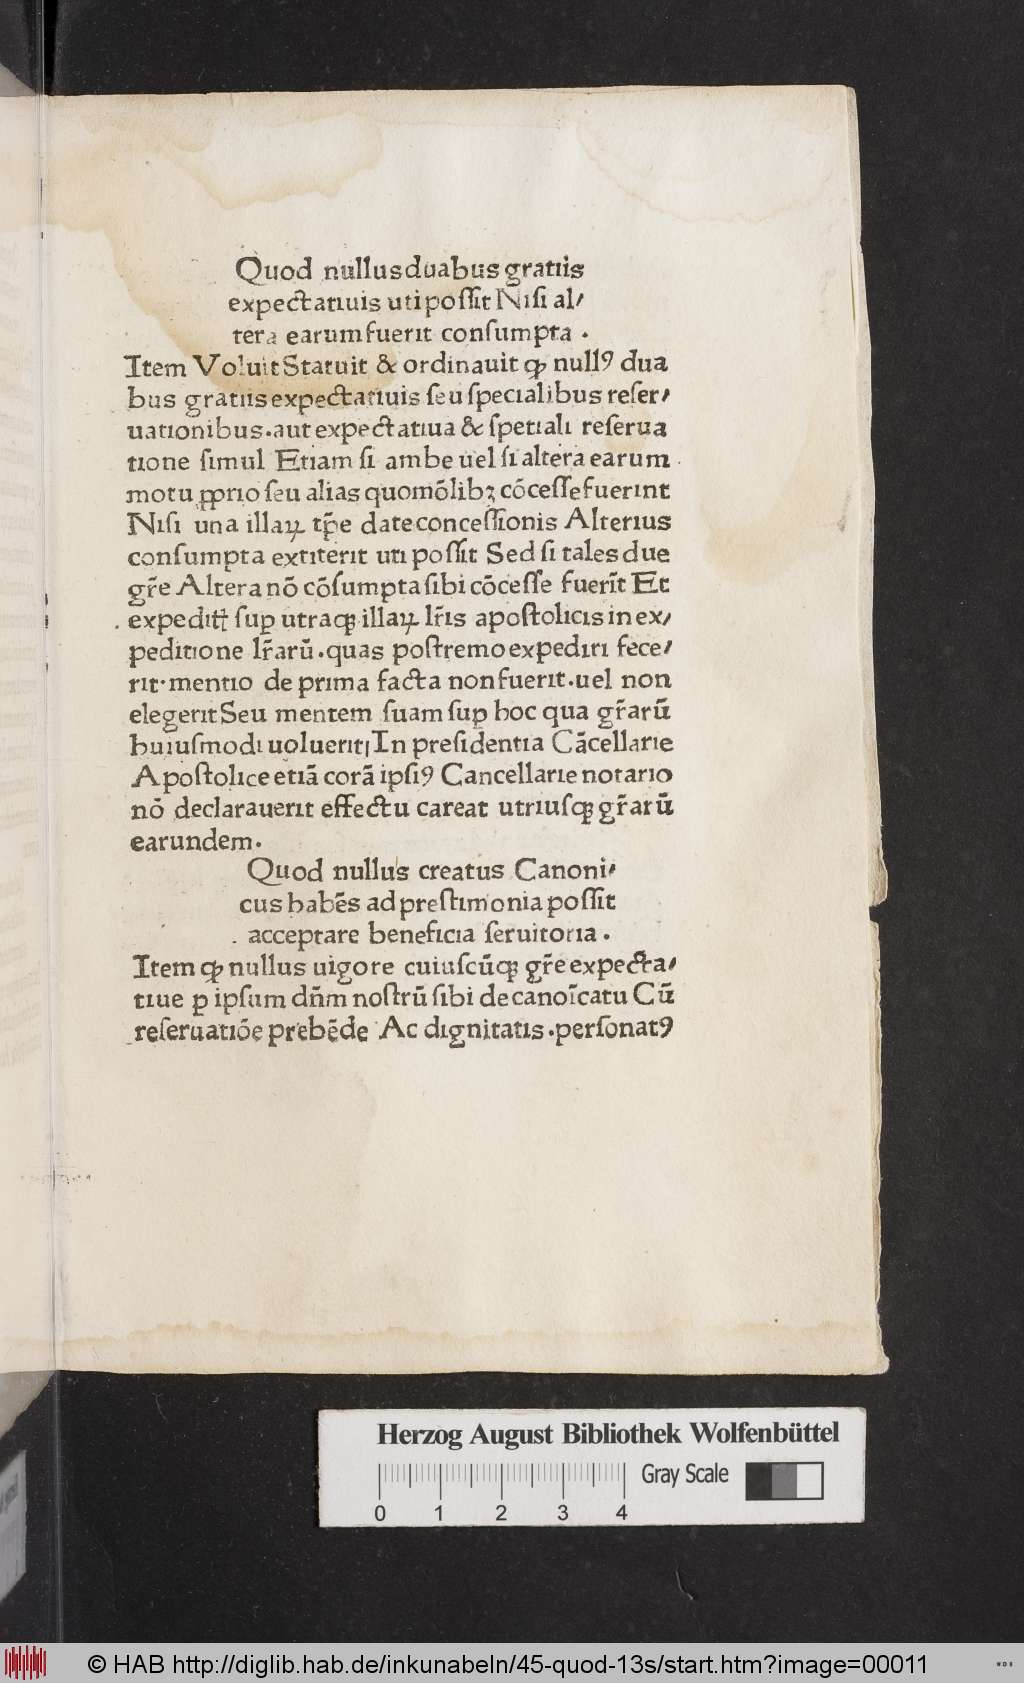 Quod nullus duabus gratiis
expectatiuis uti poſſit Niſi al⸗
tera earum fuerit conſumpta .
Item Voluit Statuit & ordinauit ꝙ nullꝰ dua
bus gratiis expectatiuis ſeu ſpecialibus reſer⸗
uationibus . aut expectatiua & ſpetiali reſerua
tione ſimul Etiam ſi ambe uel ſi altera earum
motu ꝓprio ſeu alias quomōlibꝫ cōceſſe fuerint
Niſi una illaꝝ tp̄e date conceſſionis Alterius
conſumpta extiterit uti poſſit Sed ſi tales due
gr̄e Altera nō cōſumpta ſibi cōceſſe fuerīt Et
expeditꝭ ſuꝑ utraqꝫ illaꝝ lr̄is apoſtolicis in ex⸗
peditione lr̄arū . quas poſtremo expediri fece⸗
rit . mentio de prima facta non fuerit . uel non
elegerit Seu mentem ſuam ſuꝑ hoc qua gr̄arū
huiuſmodi uoluerit, In preſidentia Cācellarie
Apoſtolice etiā corā ipſiꝰ Cancellarie notario
nō declarauerit effectu careat utriuſqꝫ gr̄arū
earundem .
Quod nullus creatus Canoni⸗
cus habēs ad preſtimonia poſſit
acceptare beneficia ſeruitoria .
Item ꝙ nullus uigore cuiuſcūqꝫ gr̄e expecta⸗
tiue ꝑ ipſum dn̄m noſtrū ſibi de canoīcatu Cū
reſeruatiōe prebēde Ac dignitatis . perſonatꝰ
Herzog August Bibliothek Wolfenbüttel
Gray Scale
0 1 2 3 4
© HAB http://diglib.hab.de/inkunabeln/45-quod-13s/start.htm?image=00011